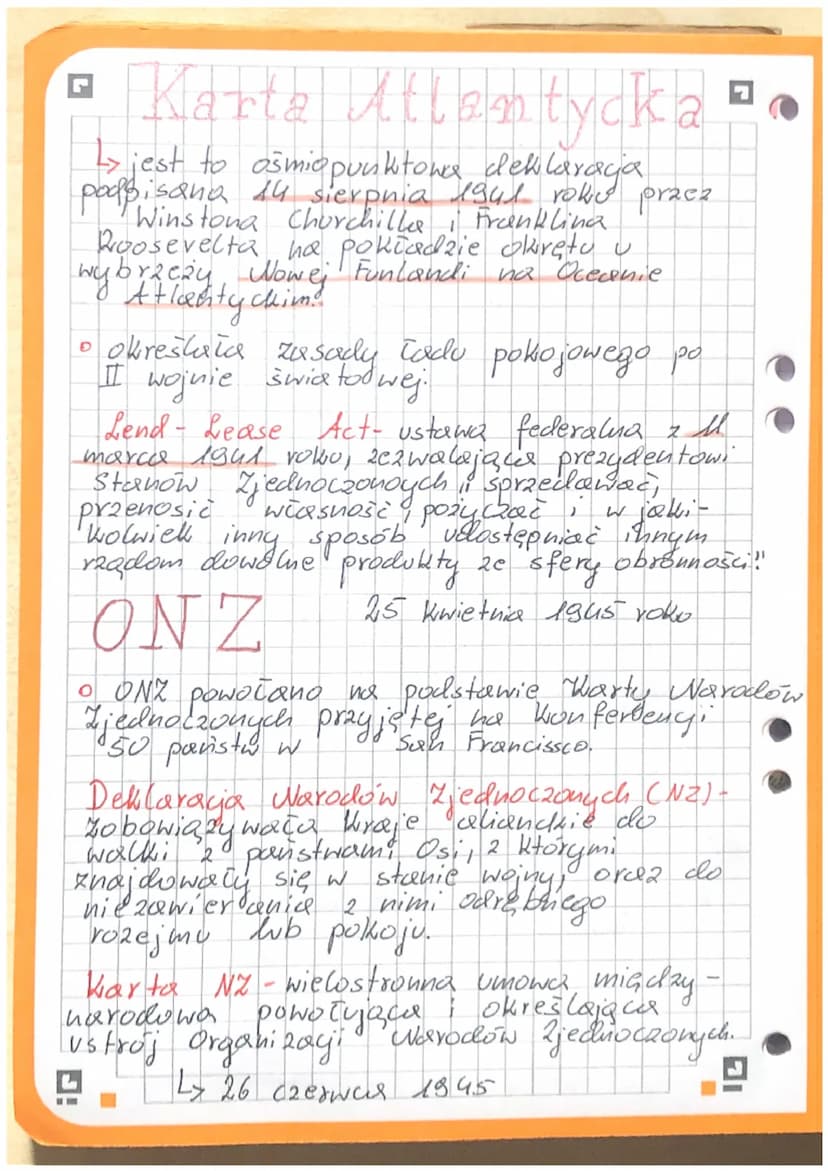 Karta Atlantycka
↳ jest to ośmiopunktowa deklaracja
podpisana 14 sierpnia 1941 roku przez
Winstona Churchilla i Franklina
Roosevelta na pokładzie okrętu u
wybrzeży Nowej Funlandi na Oceanie
Atlantyckim.
określała zasady ładu pokojowego po
II wojnie światowej.
Lend-Lease Act- ustawa federalna z 11
marca 1941 roku, zezwalająca prezydentowi
Stanów Zjednoczonych „sprzedawać,
przenosić własność, pożyczać i w jaki-
kolwiek inny sposób udostępniać innym
rządom dowolne produkty ze sfery obronności"
ONZ 25 kwietnia 1945 roku
ONZ powołano na podstawie Karty Narodów
Zjednoczonych przyjętej na konferencji
50 państw w San Francissco.
Deklaracja Narodów Zjednoczonych (NZ)-
zobowiązywała kraje alianckie do
walki z państwami Osi, z którymi
znajdowały się w stanie wojny, oraz do
niezawierania z nimi odrębnego
rozejmu lub pokoju.
Karta NZ - wielostronna umowa między-
narodowa powołująca i określająca
ustrój Organizacji Narodów Zjednoczonych.
↳ 26 czerwca 1945